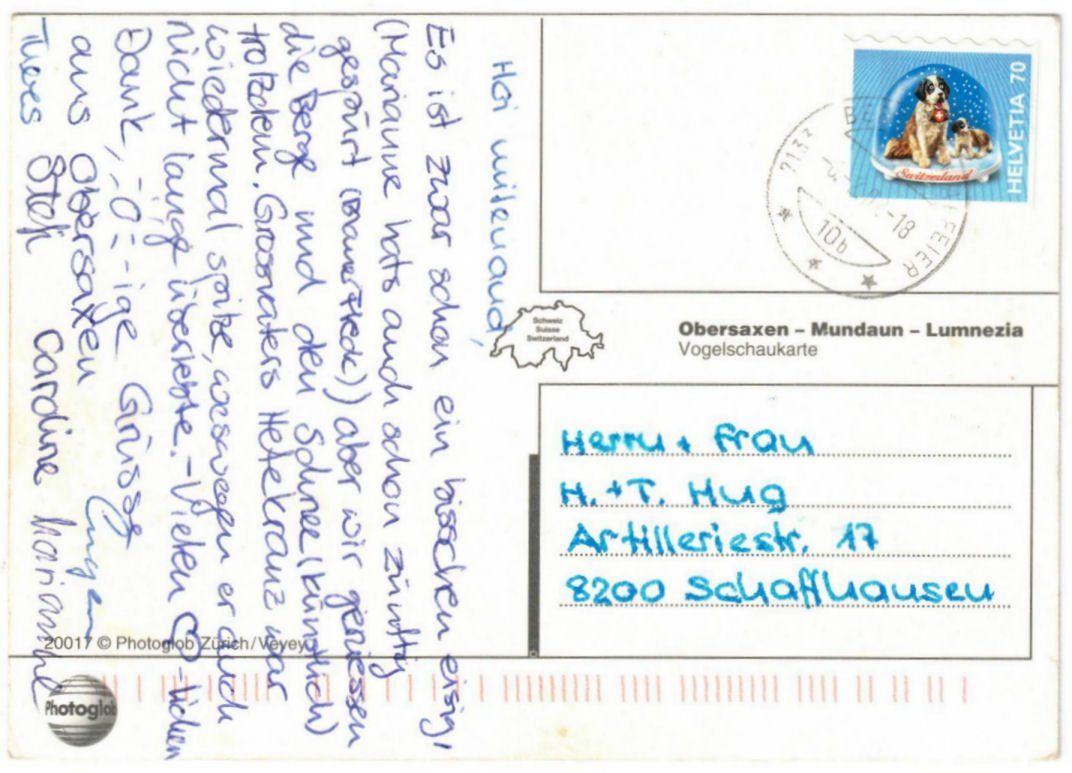 Hoi mitenand,
Es ist zwar schon ein bisschen eisig,
(Marianne hats auch schon zünftig
gespürt) aber wir geniessen
die Berge und den Schnee (künstlich)
trotzdem. Grossvaters Hefekranz war
wiedermal spitze, weswegen er auch
nicht lange überlebte. - Vielen ♡-lichen
Dank, -ige Grüsse
aus Obersaxen
Steffi Cardine Marianne
HELVETIA 70
Switzerland
10b
Schweiz
Suisse
Switzerland
Obersaxen – Mundaun – Lumnezia
Vogelschaukarte
Herrn + Frau
H. + T. Hug
Artilleriestr. 17
8200 Schaffhausen
20017 © Photoglob Zürich/Vevey
Photoglob